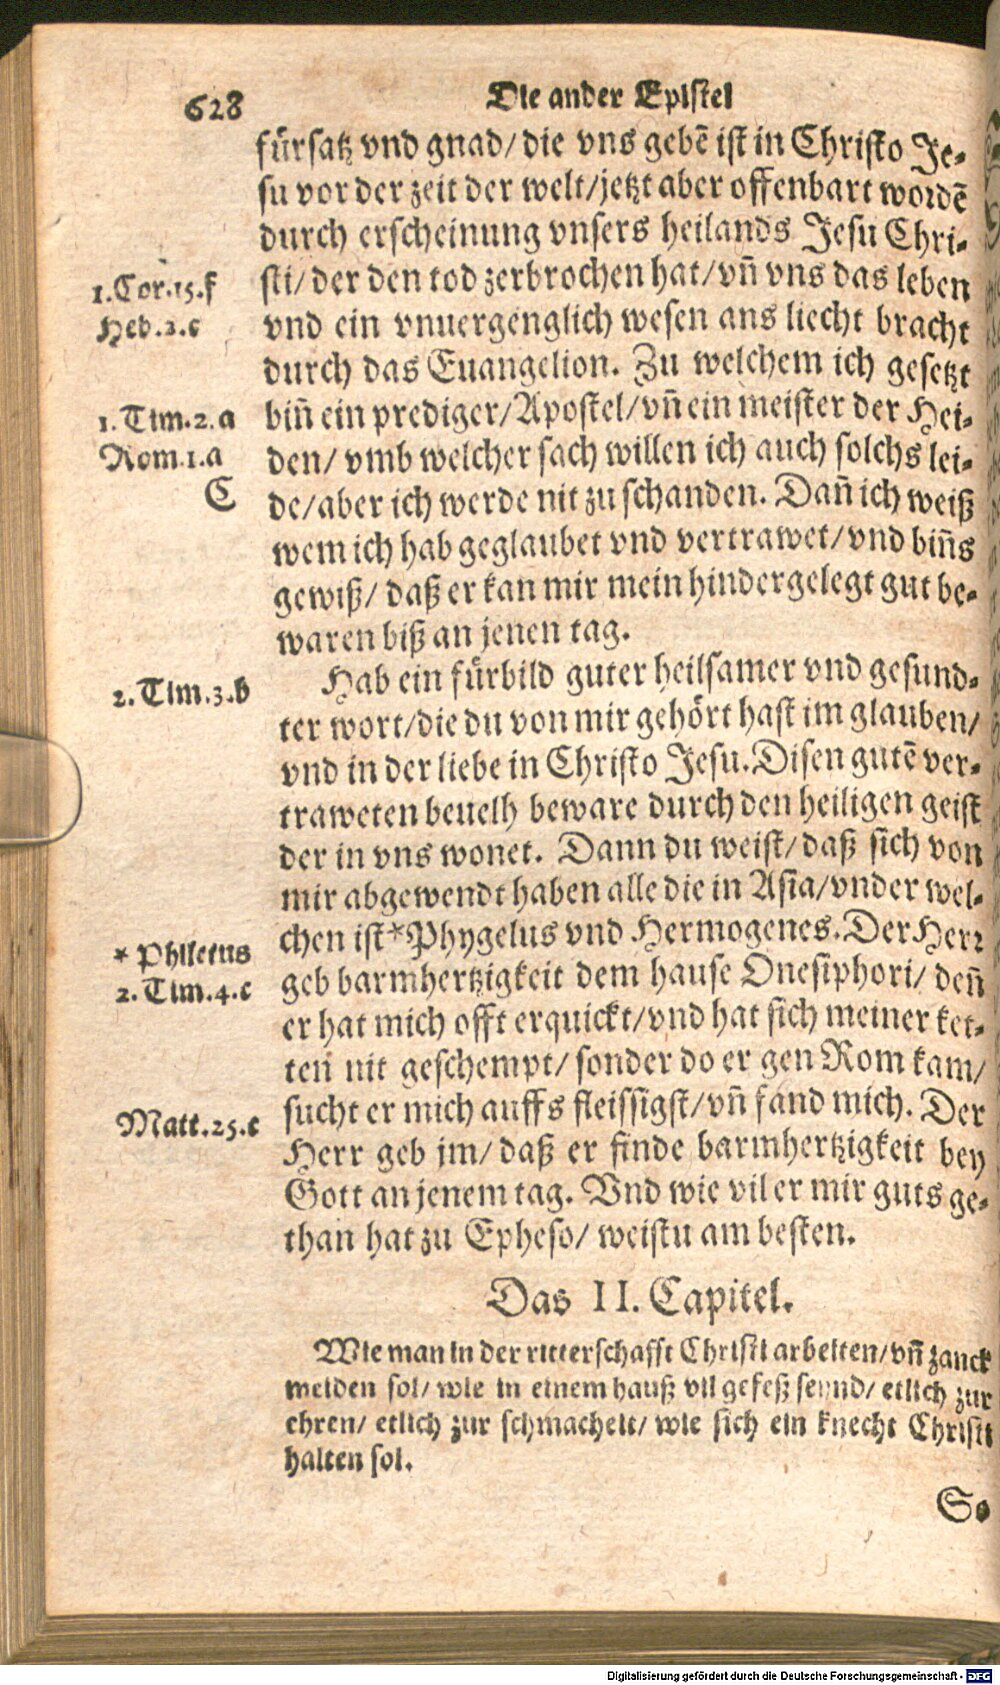 628
Die ander Epistel
fürsatz vnd gnad/ die vns gebē ist in Christo Je-
su vor der zeit der welt/ jetzt aber offenbart wordē
durch erscheinung vnsers heilands Jesu Chri-
1.Cor.15.f
sti/ der den tod zerbrochen hat/ vn̄ vns das leben
Heb.2.c
vnd ein vnuergenglich wesen ans liecht bracht
durch das Euangelion. Zu welchem ich gesetzt
1.Tim.2.a
bin̄ ein prediger/ Apostel/ vn̄ ein meister der Hei-
Rom.1.a
den/ vmb welcher sach willen ich auch solchs lei-
C
de/ aber ich werde nit zu schanden. Dan̄ ich weiß
wem ich hab geglaubet vnd vertrawet/ vnd bin̄s
gewiß/ daß er kan mir mein hindergelegt gut be-
waren biß an jenen tag.
2.Tim.3.b
Hab ein fürbild guter heilsamer vnd gesund-
ter wort/ die du von mir gehört hast im glauben/
vnd in der liebe in Christo Jesu. Disen gutē ver-
traweten beuelh beware durch den heiligen geist
der in vns wonet. Dann du weist/ daß sich von
mir abgewendt haben alle die in Asia/ vnder wel-
* Philetus
chen ist *Phygelus vnd Hermogenes. Der Herr
2.Tim.4.c
geb barmhertzigkeit dem hause Onesiphori/ den̄
er hat mich offt erquickt/ vnd hat sich meiner ket-
ten nit geschempt/ sonder do er gen Rom kam/
Matt.25.c
sucht er mich auffs fleissigst/ vn̄ fand mich. Der
Herr geb jm/ daß er finde barmhertzigkeit bey
Gott an jenem tag. Vnd wie vil er mir guts ge-
than hat zu Epheso/ weistu am besten.
Das II. Capitel.
Wie man in der ritterschafft Christi arbeiten/ vn̄ zanck
meiden sol/ wie in einem hauß vil gefeß seynd/ etlich zur
ehren/ etlich zur schmacheit/ wie sich ein knecht Christi
halten sol.
So
Digitalisierung gefördert durch die Deutsche Forschungsgemeinschaft - DFG